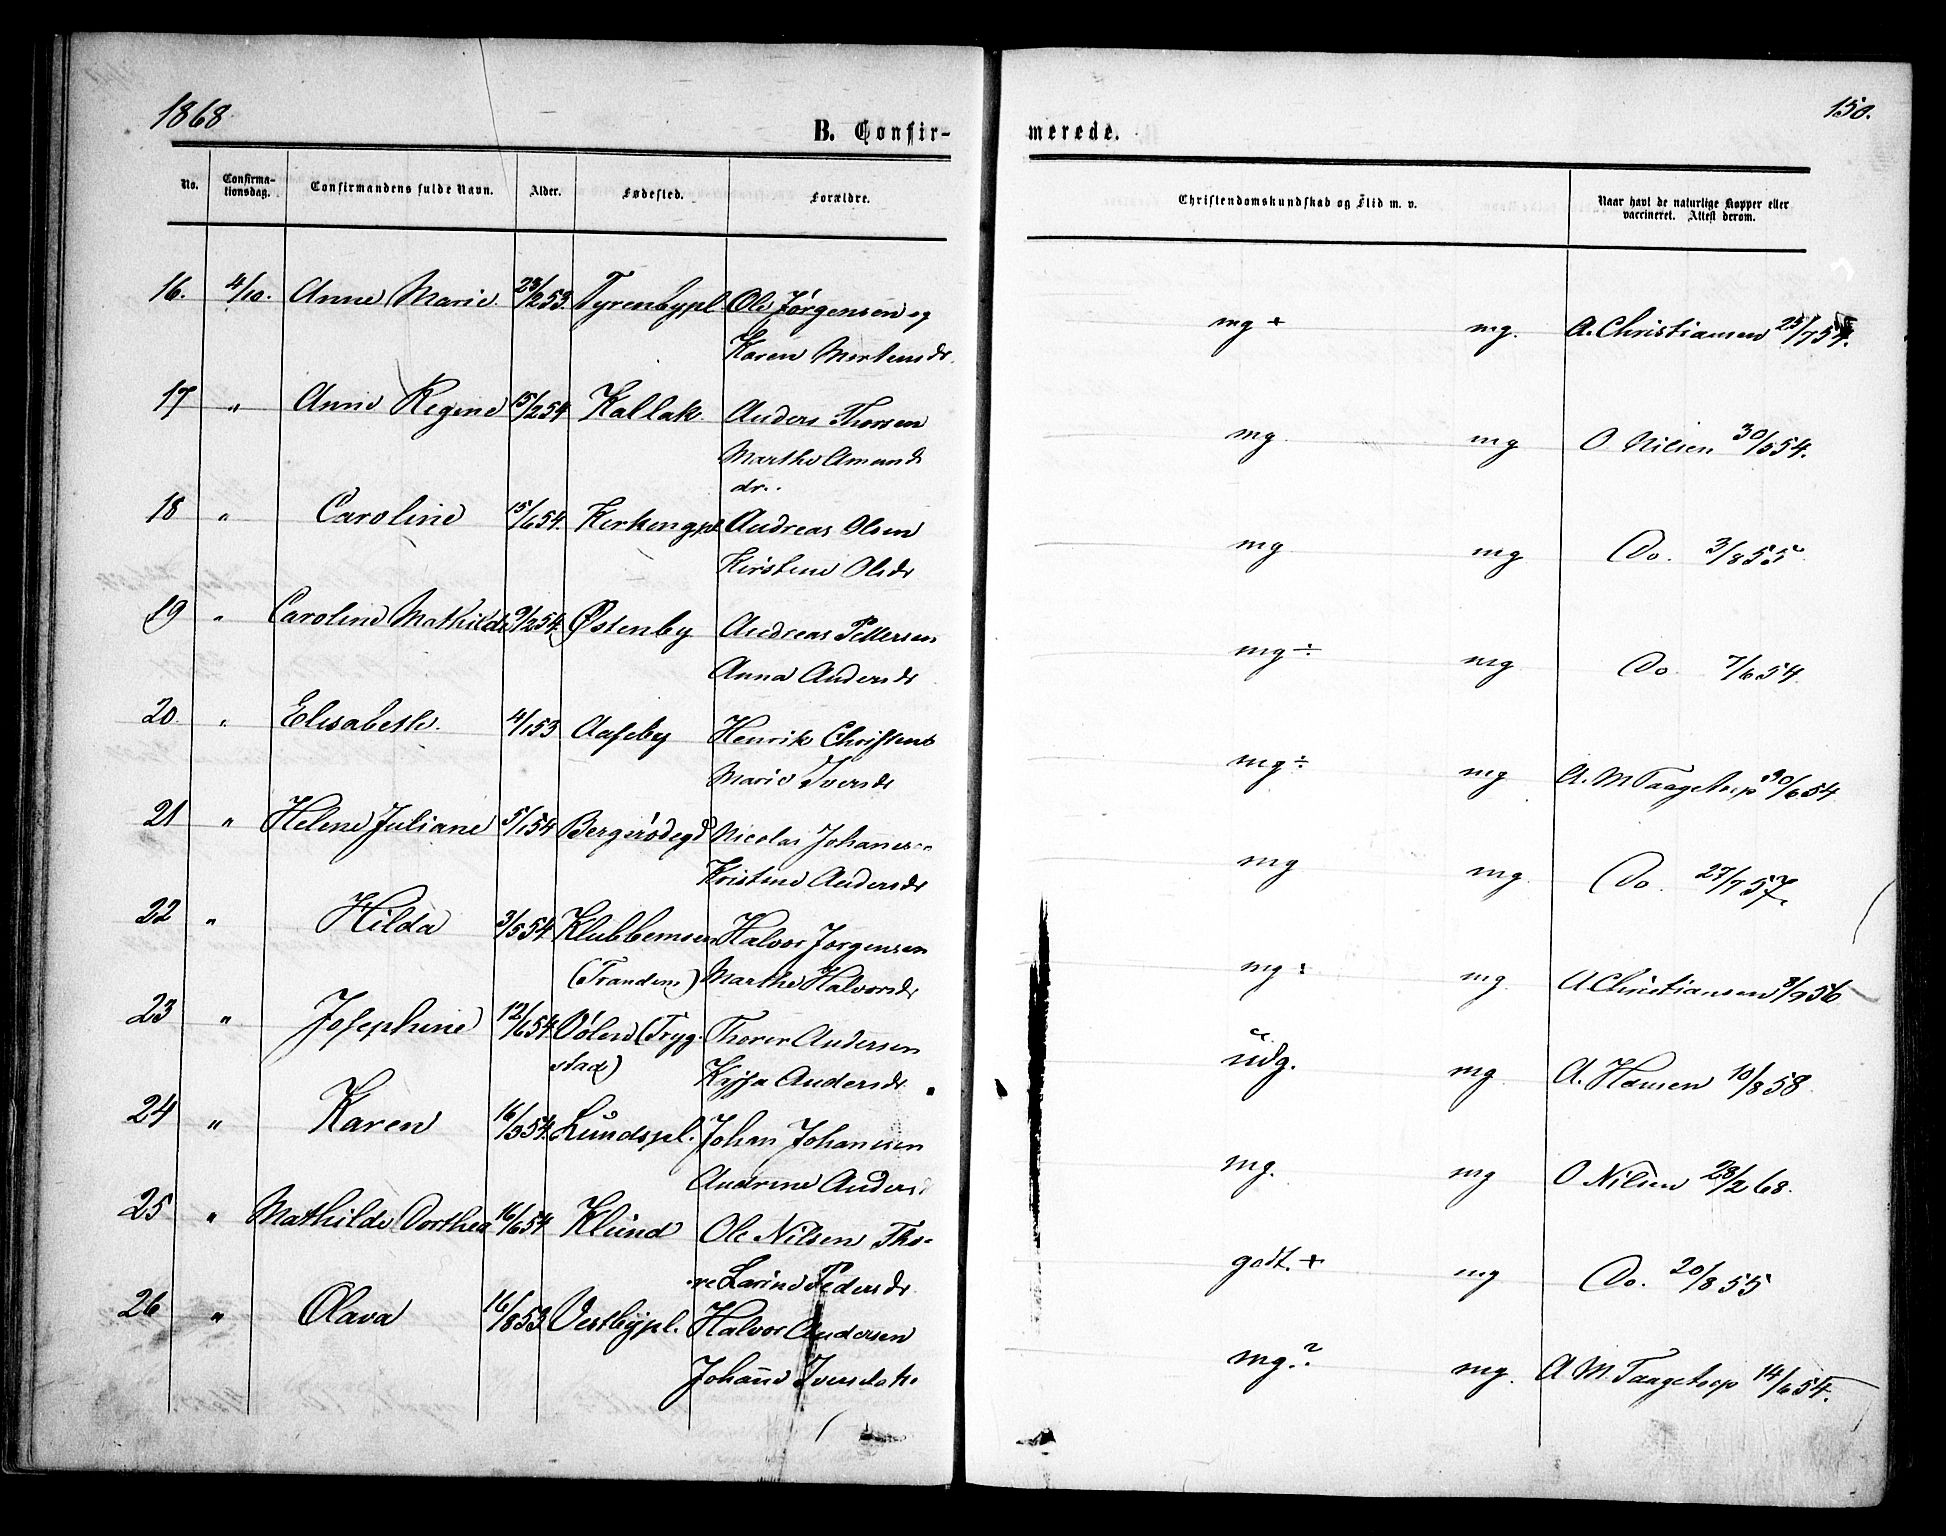 1868
150.
B. Confir-
merede.
No.
Confirma-
tionsdag.
Confirmandens fulde Navn.
Alder.
Fødested.
Forældre.
Christendomskundskab og Flid m. v.
Naar havt de naturlige Kopper eller
vaccineret. Attest derom.
16. 4/10. Anne Marie 23/2 53. Tyrenbypl. Ole Jørgensen og mg + mg. A. Christiansen 25/7 54.
Karen Mortensdr.
17 " Anne Regine 15/2 54 Kallak. Anders Thorsen mg mg O Nilsen 30/5 54.
Marthe Amunds
dr.
18 " Caroline 15/6 54. Kirkengpl Andreas Olsen mg mg Do. 3/8 55
Kirstine Olsdr
19 " Caroline Mathilde 9/2 54. Østenby Andreas Pettersen mg ÷ mg Do 7/6 54
Anna Andersdr
20 " Elisabeth. 4/1 53 Aaseby Henrik Christens mg ÷ mg A. M Taagetorp 30/6 54
Marie Iversdr
21 " Helene Juliane 5/1 54 Bergerødegd Nicolai Johanesen mg mg Do. 27/7 57.
Kristine Andersdr
22 " Hilda 3/5 54 Klubbemoen Halvor Jorgensen mg : mg A Christiansen 8/9 56
(Tranden) Marthe Halvorsdr
23 " Josephine 12/6 54. Vølen (Tryg- Thorer Andersen udg. mg A. Hansen 10/8 58
stad) Kissa Andersdr
24 " Karen 16/3 54. Lundspl. Johan Johansen mg. mg O Nilsen 28/2 68.
Andrine Anders
25 " Mathilde Dorthea 16/6 54. Klund Ole Nilsen Tho- godt. + mg Do. 20/8 55
re Larine Pedersdr
26 " Olava 16/8 53 Vestbypl. Halvor Andersen mg. ? mg. A. M. Taagetorp 14/6 54.
Johane Iversdr